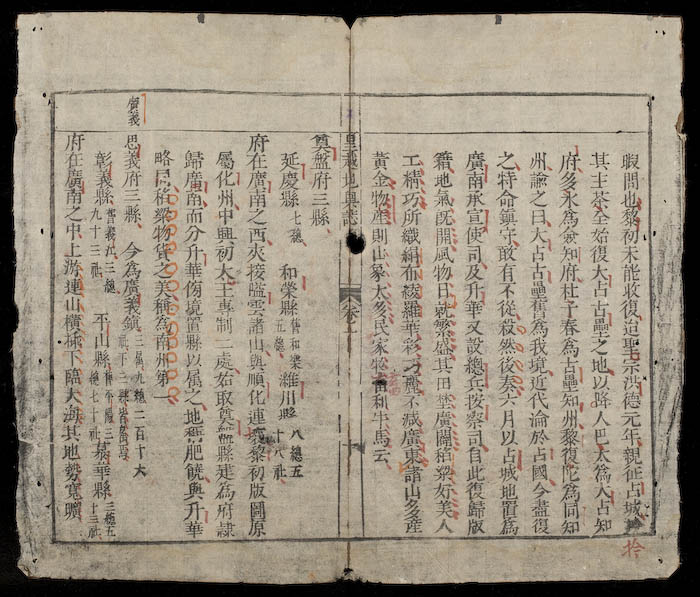 暇問也黎初未能收復迨聖宗洪德元年親征占城擒
其主茶全始復大占古壘之地以降人巴太為大占知
府多水為僉知府杜子春為古壘知州黎陀為同知
州諭之曰大占古壘舊為我境近代淪於占國今盡復
之特命鎮守敢有不從殺然後奏六月以占城地置為
廣南承宣使司及升華又設總兵按察司自此復歸版
籍地氣既開風物日就繁盛其田埜廣闢稻粱好美人
工精巧所織絹布綾羅華彩巧麗不減廣東諸山多產
黃金物產則山象太多民家牧和牛馬云
拾
皇越地輿誌 卷之一 十
奠盤府三縣
延慶縣七總 和榮縣舊和榮五總 濰川縣八總五十八社
府在廣南之西夾接隘雲諸山與順化連境黎初版圖原
屬化州中興初太王專制二處始取奠盤縣建為府隸
歸廣南而分升華傍境置縣以属之地稱肥饒與升華
略同稻粱物貨之美稱為南州第一
廣義
思義府三縣 今為廣義鎮三縣九總二百十六社下三縣皆舊号
彰義縣舊義三總九十三社 平山縣舊平陽三總七十社 慕華縣三總五十三社
府在廣南之中上游連山橫插下臨大海其地勢寬曠